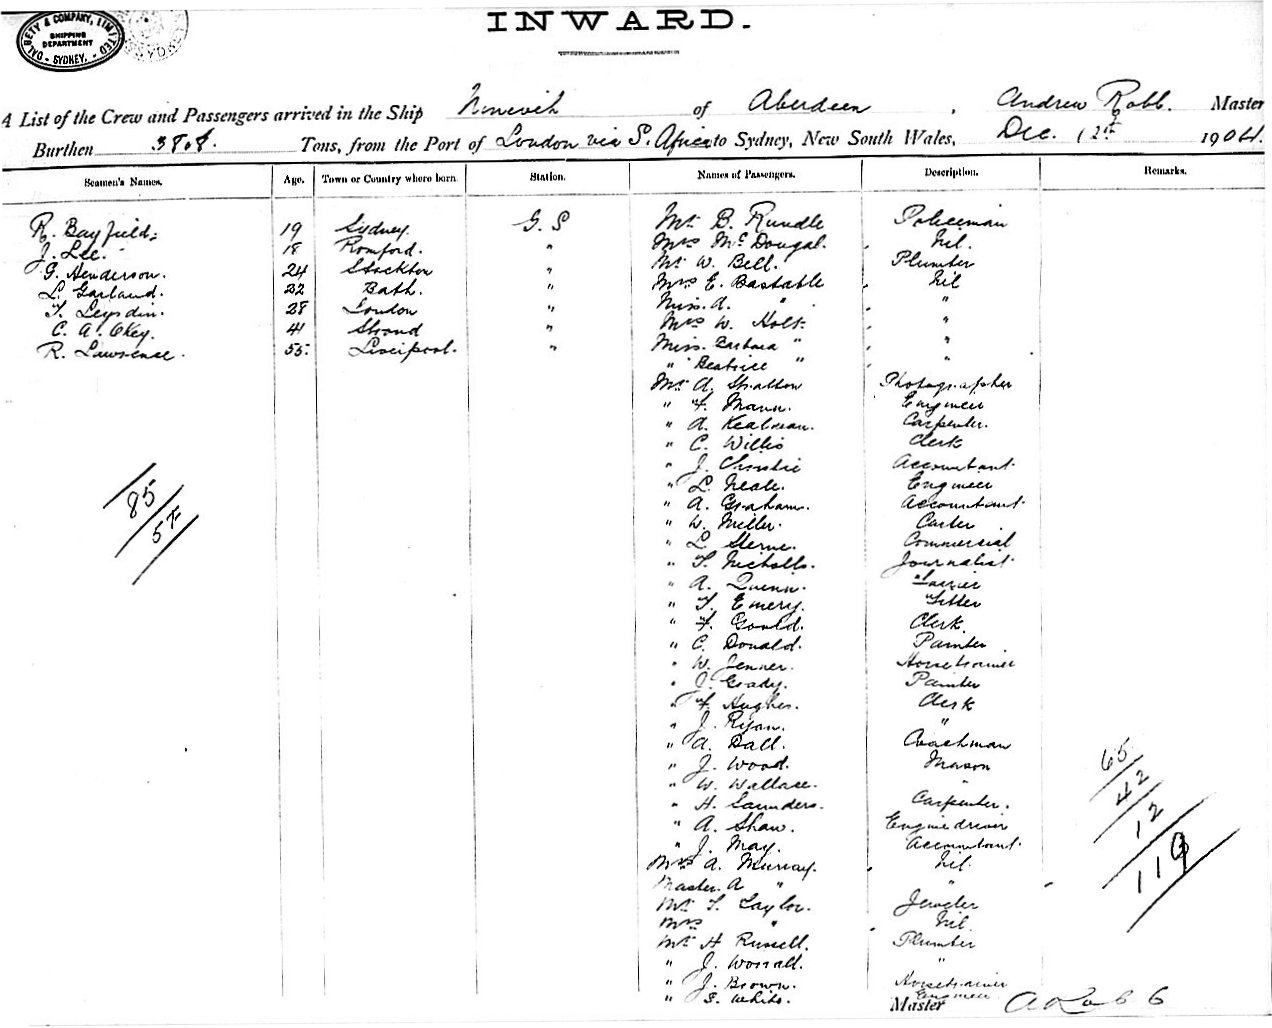 DALGETY & COMPANY, LIMITED
SHIPPING
DEPARTMENT
- SYDNEY. -
INWARD.
A List of the Crew and Passengers arrived in the Ship Nineveh of Aberdeen, Andrew Robb. Master
Burthen 3808. Tons, from the Port of London via S. Africa to Sydney, New South Wales, Dec. 12th 1904.
Seamen's Names. Age. Town or Country where born. Station. Names of Passengers. Description. Remarks.
R. Bayfield. 19 Sydney. G.S Mr. B. Rundle Policeman
J. Lee. 18 Romford. " Mrs McDougal. Nil.
G. Henderson. 24 Stockton " Mr W. Bell. Plumber
L. Garland. 22 Bath. " Mrs E. Bastable Nil
T. Leysdin. 28 London " Miss. A. " "
C. A. Okey. 41 Stroud " Mrs W. Holt. "
R. Lawrence. 55. Liverpool. " Miss. Barbara " "
" Beatrice " "
Mr A. Stratton Photographer
" F. Mann. Engineer
" A. Carpenter.
" C. Willis Clerk
" J. Christie Accountant.
" L. Neale. Engineer
" A. Graham. Accountant.
" W. Miller. Carter
" L. Sterne. Commercial
" T. Nicholls. Journalist.
" A. Quinn.
" T. Emery. Fitter
" F. Gould. Clerk.
" C. Donald. Painter.
" W. Jenner. Horsetrainer
" J. Grady. Painter
" F. Hughes. Clerk
" J. Ryan. "
" A. Dall. Coachman
" J. Wood. Mason
" W. Wallace. "
" H. Saunders. Carpenter.
" A. Shaw. Engine driver
" J. May. Accountant.
Mrs A. Murray. Nil.
Master. A " "
Mr T. Taylor. Jeweler
Mrs " Nil.
Mr H Russell. Plumber
" J. Worrall. "
" J. Brown. Horsetrainer
" S. White. Engineer
85
57
65
42
12
119
Master A Robb